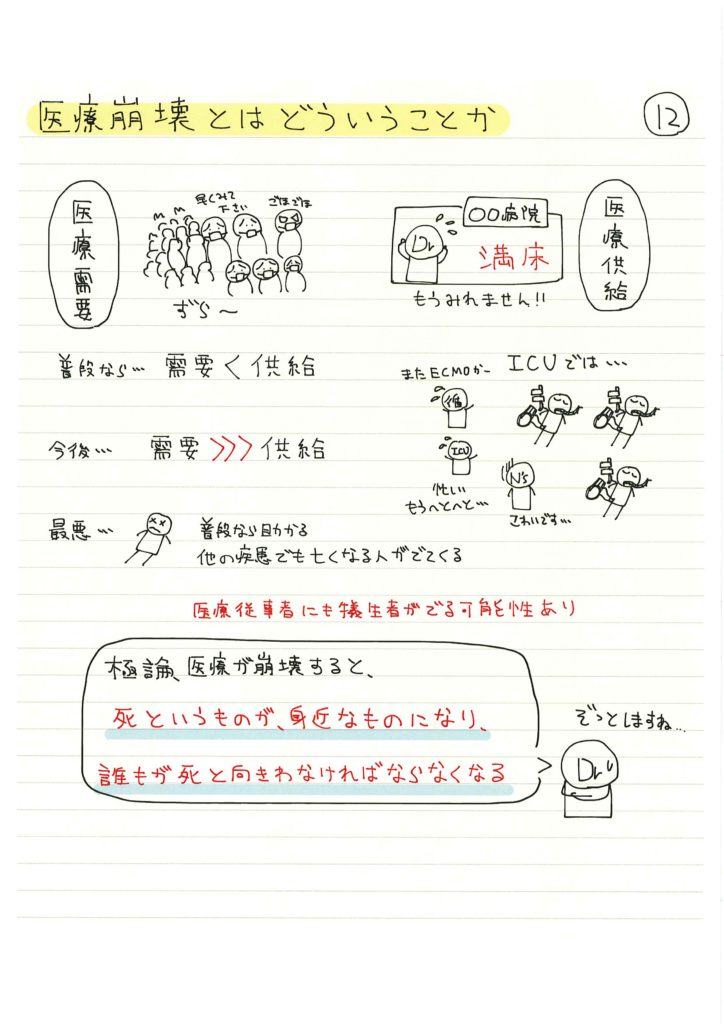 医療崩壊とはどういうことか
12
医療需要
早くみて
下さい
ごほごほ
ずら〜
〇〇病院
Dr
満床
もうみれません!!
医療供給
普段なら… 需要く供給
今後… 需要>>>供給
最悪… 普段なら助かる
他の疾患でも亡くなる人がでてくる
またECMOかー
ICUでは…
ICU
忙しい
もうへとへと…
N's
こわいです…
医療従事者にも犠牲者がでる可能性あり
極論、医療が崩壊すると、
死というものが、身近なものになり、
誰もが死と向きわなければならなくなる
ぞっとしますね…
Dr